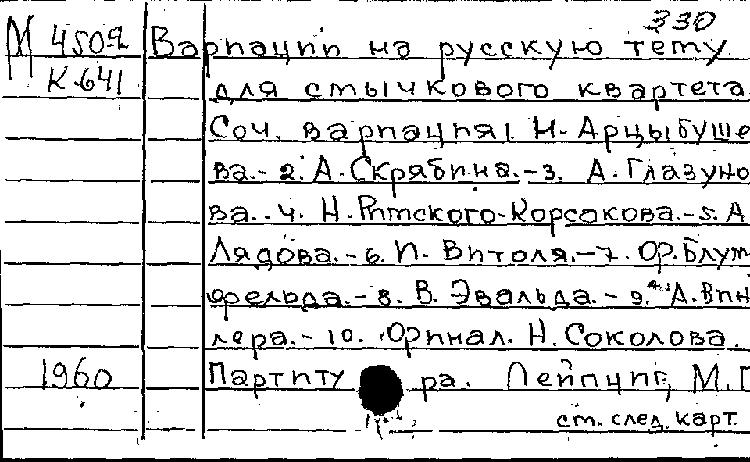 330
М 450-2 Вариации на русскую тему
К-641 для смычкового квартета
Соч. вариация 1 Н. Арцыбуше
ва.-2. А. Скрябина.-3. А. Глазуно
ва.-4. Н. Римского-Корсокова.-5. А
Лядова.-6. И. Витоля.-7. Ф. Блум
фельда.-8. В. Эвальда.-9. А. Вин
лера.-10. Финал. Н. Соколова.
1960 Партиту ра. Лейпциг, М. П
см. след. карт.